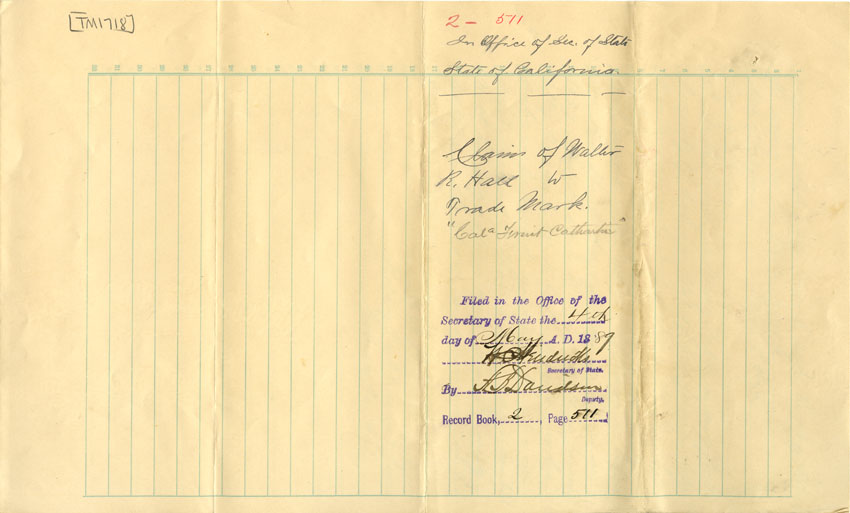 [TM1718]
2 - 511
In Office of Sec. of State
State of California.
Claim of Walter
R. Hall to
Trade Mark.
"Cala Fruit Cathartic"
Filed in the Office of the
Secretary of State the 4th
day of May A. D. 1889
W C Hendricks
Secretary of State.
By A. T. Davidson
Deputy.
Record Book, 2, Page 511